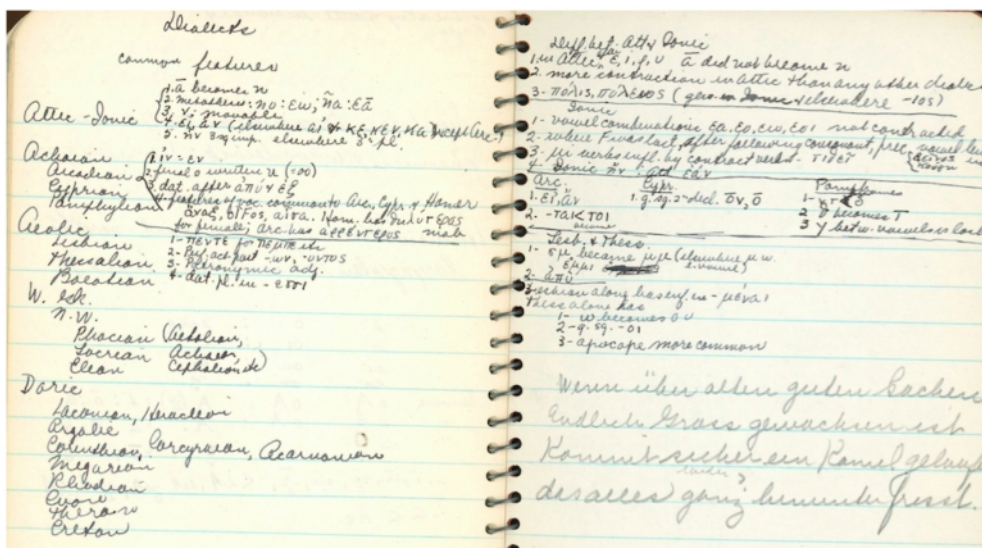 Dialects
common features
Attic-Ionic
1. ᾱ becomes η
2. metathesis: ηο: εω, ηα: εᾱ
3. ν movable
4. εἰ, ἄν (elsewhere αἰ & κε, κεν, κα except Arc.)
5. ἦν 3 sg. imp. elsewhere 3 pl.
Achaean
Arcadian
Cyprian
Pamphylian
1. ἰν = ἐν
2. final o written υ (=oo)
3. dat. after ἀπύ & ἐξ
4. features of voc. common to Arc, Cypr. & Homer
ἄναξ, οἶϝος, αἶσα. Hom. has θηλύτερος
for female; Arc. has ἀρρέντερος male
Aeolic
Lesbian
Thessalian
Boeotian
1- πέντε for πέμπε etc
2- Perf. act. part -ων, -οντος
3- Patronymic adj.
4- dat. pl. in -εσσι
W. Gk.
N.W.
Phocian (Aetolian,
Locrian Achaean,
Elean Cephalonite)
Doric
Laconian, Heraclean
Argolic
Corinthian, Corcyraean, Acarnanian
Megarian
Rhodian
Coan
Theran
Cretan
Diff. bet. Att & Ionic
1. in Attic, after ε, ι, ρ, υ ᾱ did not become η
2. more contraction in attic than any other dialect
3- πόλις, πόλεως (elsewhere -ιος)
Ionic
1- vowel combinations εα, εο, εω, εοι not contracted
2- where F was lost, after following consonant, prec. vowel
3- μι verbs infl. by contract verbs - τιθεῖ
4- Ionic ἤν Att ἐάν
Arc.
1. εἰ, ἄν
2. -τοι
Cypr.
1. g. sg. 2nd decl. ον, ο
Pamph
2 becomes τ
3 γ betw. vowels is lost
Lesb. & Thess.
1- σμ became μμ (elsewhere μ w.
ἔμμι vowel)
2. ἀπύ
Lesbian alone has inf. in -μεναι
Thess alone has
1- ω becomes ου
2- g. sg. -οι
3- apocope more common
Wenn über alten guten Sachen
Endlich Grass gewachsen ist
Kommt sicher ein Kamel gelaufe
das alles ganz herunter frisst.